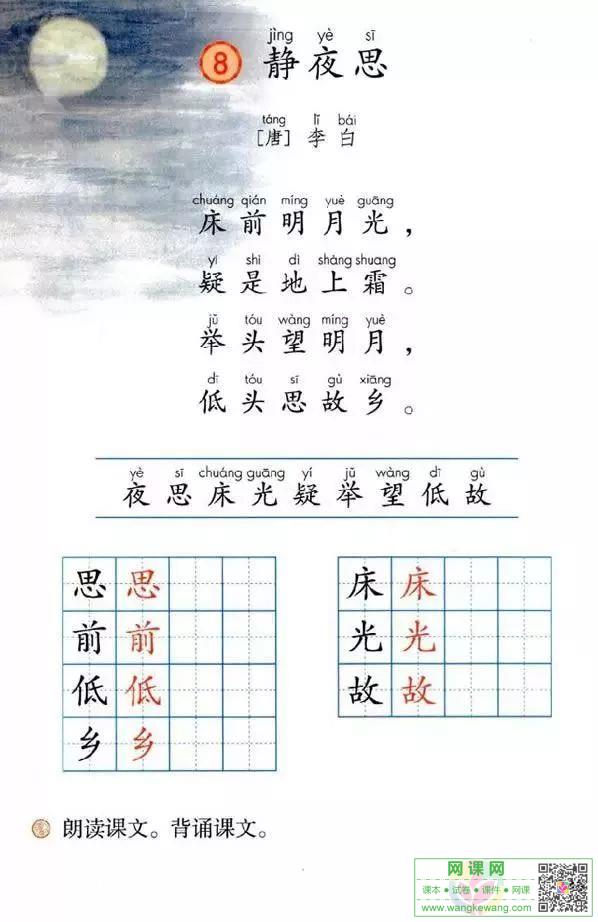 jìng yè sī
8 静夜思
táng lǐ bái
[唐] 李白
chuáng qián míng yuè guāng
床前明月光，
yí shì dì shàng shuang
疑是地上霜。
jǔ tóu wàng míng yuè
举头望明月，
dī tóu sī gù xiāng
低头思故乡。
yè sī chuáng guāng yí jǔ wàng dī gù
夜思床光疑举望低故
思思
前前
低低
乡乡
床床
光光
故故
朗读课文。背诵课文。
网课网
课本·试卷·课件·网课
www.wangkewang.com